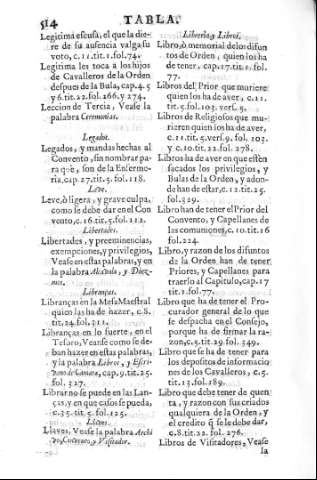 514 TABLA.
Legitima escusa, el que la diere
re de su ausencia valga su
voto, c.11.tit.1.fol.74.
Legitima les toca a los hijos
de Cavalleros de la Orden
despues de la Bula, cap.4. 5
y 6.tit.22.fol.266.y 274.
Leccion de Tercia, Vease la
palabra Ceremonias.
Legados.
Legados, y mandas hechas al
Convento, sin nombrar para
què, son de la Enfermeria,
cap.27.tit.5.fol.118.
Leve.
Leve, ò ligera, y grave culpa,
como se debe dar en el Convento,
c.16.tit.5.fol.112.
Libertades.
Libertades, y preeminencias,
exempciones, y privilegios,
Vease en estas palabras, y en
la palabra Alcavala, y Diezmos.
Libranças.
Libranças en la Mesa Maestral
quien las ha de hazer, c.8.
tit.24.fol.311.
Libranças en lo fuerte, en el
Tesoro, Vease como se deban
hazer en estas palabras,
y la palabra Libros, y Escrivano
de Camara, cap.9.tit.25.
fol.327.
Librar no se puede en las Lanças,
y en que casos se pueda,
c.25.tit.5.fol.125.
Llaves.
Llaves, Vease la palabra Archivo,
Convento, y Visitador.
Libreria, y Libros.
Libro, ò memorial de los difuntos
de Orden, quien los ha
de tener, cap.17.tit.1.fol.
77.
Libros del Prior que muriere
quien los ha de aver, c.11.
tit.5.fol.103.vers.5.
Libros de Religiosos que murieren
quien los ha de aver,
c.11.tit.5.vers.9.fol.103.
y c.10.tit.22.fol.278.
Libros ha de aver en que estèn
sacados los privilegios, y
Bulas de la Orden, y adonde
han de estar, c.12.tit.25.
fol.329.
Libro han de tener el Prior del
Convento, y Capellanes de
las comuniones, c.10.tit.16
fol.224.
Libro, y razon de los difuntos
de la Orden han de tener
Priores, y Capellanes para
traerlo al Capitulo, cap.17
tit.1.fol.77.
Libro que ha de tener el Procurador
general de lo que
se despacha en el Consejo,
porque ha de firmar la razon,
c.5.tit.29.fol.349.
Libro que se ha de tener para
los depositos de informaciones
de los Cavalleros, c.5.
tit.13.fol.189.
Libro que debe tener de quenta,
y razon con sus criados
qualquiera de la Orden, y
el credito q̃ se le debe dar,
c.8.tit.22.fol.276.
Libros de Visitadores, Vease
la